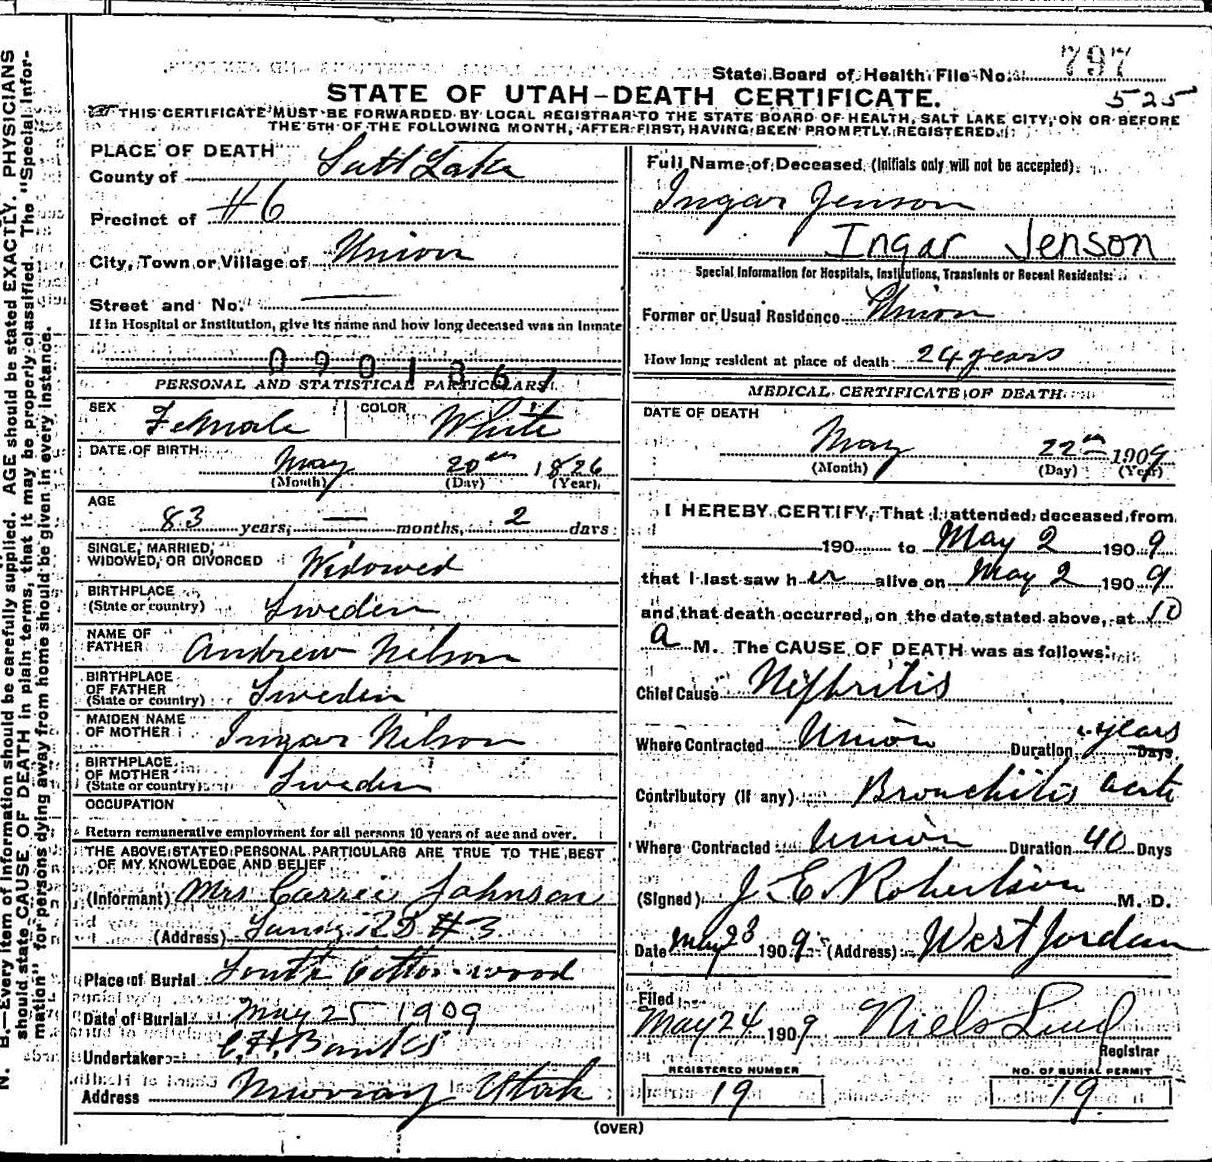 State Board of Health File No. 797
525
STATE OF UTAH-DEATH CERTIFICATE.
THIS CERTIFICATE MUST BE FORWARDED BY LOCAL REGISTRAR TO THE STATE BOARD OF HEALTH, SALT LAKE CITY, ON OR BEFORE
THE 5TH OF THE FOLLOWING MONTH, AFTER FIRST HAVING BEEN PROMPTLY REGISTERED.
N. B.—Every item of Information should be carefully supplied. AGE should be stated EXACTLY. PHYSICIANS
should state CAUSE OF DEATH in plain terms, that it may be properly classified. The "Special Infor-
mation" for persons dying away from home should be given in every instance.
PLACE OF DEATH
County of Salt Lake
Precinct of #6
City, Town or Village of Union
Street and No. —
If in Hospital or Institution, give its name and how long deceased was an Inmate
0901367
PERSONAL AND STATISTICAL PARTICULARS
SEX Female COLOR White
DATE OF BIRTH May 20th 1826
(Month) (Day) (Year)
AGE
83 years, — months, 2 days
SINGLE, MARRIED,
WIDOWED, OR DIVORCED Widowed
BIRTHPLACE
(State or country) Sweden
NAME OF
FATHER Andrew Nilson
BIRTHPLACE
OF FATHER
(State or country) Sweden
MAIDEN NAME
OF MOTHER Ingar Nilson
BIRTHPLACE
OF MOTHER
(State or country) Sweden
OCCUPATION
Return remunerative employment for all persons 10 years of age and over.
THE ABOVE STATED PERSONAL PARTICULARS ARE TRUE TO THE BEST
OF MY KNOWLEDGE AND BELIEF
(Informant) Mrs Carrie Johnson
(Address) Sandy RD #3
Place of Burial South Cottonwood
Date of Burial May 25 1909
Undertaker Banks
Address Murray Utah
Full Name of Deceased (Initials only will not be accepted).
Ingar Jenson
Ingar Jenson
Special Information for Hospitals, Institutions, Transients or Recent Residents:
Former or Usual Residence Union
How long resident at place of death 24 years
MEDICAL CERTIFICATE OF DEATH
DATE OF DEATH
May 22nd 1909
(Month) (Day) (Year)
I HEREBY CERTIFY, That I attended deceased from
190 to May 2 1909
that I last saw her alive on May 2 1909
and that death occurred, on the date stated above, at 10
a M. The CAUSE OF DEATH was as follows:
Chief Cause Nefhritis
Where Contracted Union Duration years Days
Contributory (if any) Bronchitis acute
Where Contracted Union Duration 40 Days
(Signed) J. E. Robertson M. D.
Date May 23 1909 (Address) West Jordan
Filed
May 24 1909 Niels Lind
Registrar
REGISTERED NUMBER NO. OF BURIAL PERMIT
19 19
(OVER)